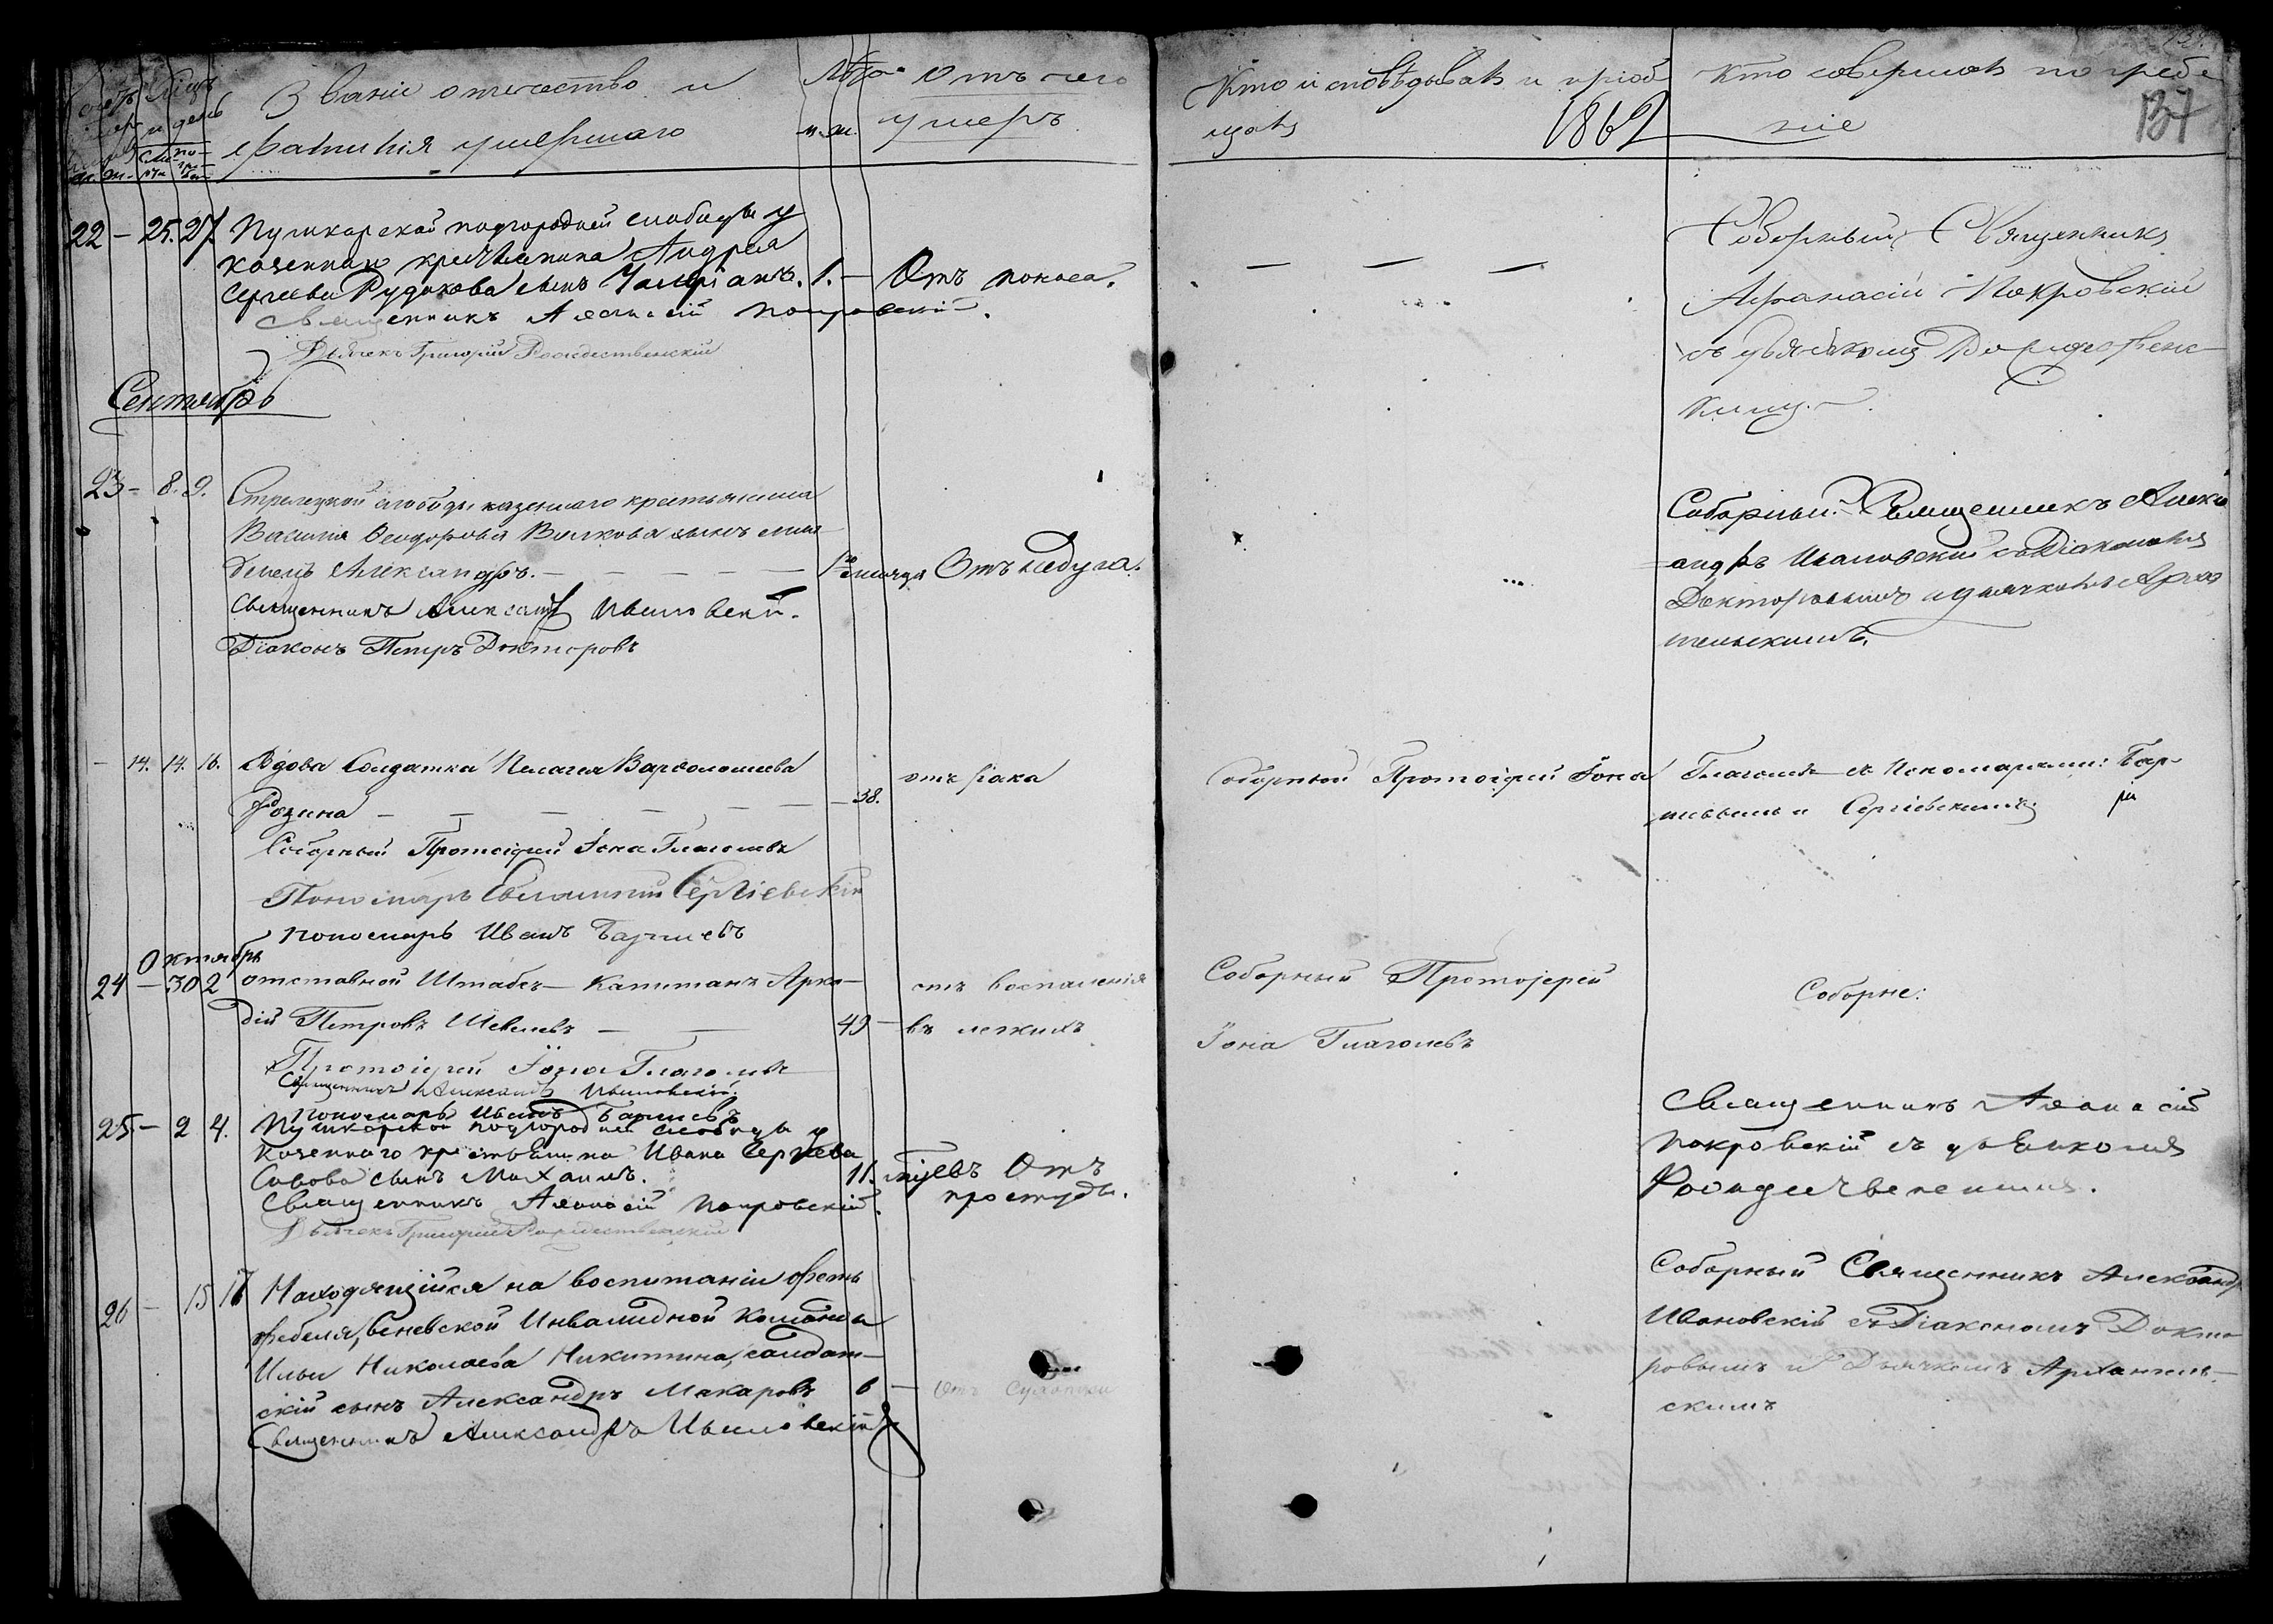 Званіе отечество и
фамилія умершаго
Лѣта
м. ж.
Отъ чего
умеръ
Кто исповѣдывалъ и пріоб
щалъ
1862
Кто совершалъ погребе
ніе
137
22 – 25. 27. Пушкарской подгородней слободы у
казеннаго крестьянина Андрея
Сергеева Рудакова сынъ 1. – Отъ поноса.
Священникъ Аѳанасій Покровскій.
Дьячекъ Григорій Рождественскій
Соборный Священникъ
Афанасій Покровскій
съ дьячкомъ Рождественс
кимъ.
Сентябрь
23 – 8. 9. Стрелецкой слободы казеннаго крестьянина
Василія Ѳеодорова Волкова сынъ мла
денецъ Александръ. – Отъ недуга.
Священникъ Александръ Ивановскій.
Діаконъ Петръ Докторовъ
Соборный Священникъ Алекс
андръ Ивановскій съ Діакономъ
Докторовымъ и дьячкомъ Архан
гельскимъ.
– 14. 14. 16. Вдова Солдатка Пелагея Варѳоломеева
Розина – 38. отъ рака
Соборный Протоіерей Іона Глаголевъ
Пономарь Сергіевскій
пономарь Иванъ
Соборный Протоіерей Іона
Глаголевъ съ Пономарями:
и Сергіевскимъ
Октябрь
24 – 30 2 отставной Штабсъ-Капитанъ Арка-
дій Петровъ Шевелевъ – 49 – отъ воспаленія
въ легкихъ
Протоіерей Іона Глаголевъ
Священникъ Александръ Ивановскій
Пономарь Иванъ
Соборный Протоіерей
Іона Глаголевъ
Соборне:
25. – 2 4. Пушкарской подгородней слободы у
казеннаго крестьянина Ивана Сергѣева
Савова сынъ Михаилъ. 11. Отъ
простуды.
Священникъ Аѳанасій Покровскій.
Дьячекъ Григорій Рождественскій
Священникъ Аѳанасій
Покровскій съ дьячкомъ
Рождественскимъ.
26 – 15 17 Находящійся на воспитаніи у фельд
фебеля, Веневской Инвалидной Команды
Ильи Николаева Никитина, солдат-
скій сынъ Александръ Макаровъ 6 – Отъ
Священникъ Александръ Ивановскій
Соборный Священникъ Александръ
Ивановскій съ Діакономъ Докто
ровымъ и Дьячкомъ Архангель-
скимъ